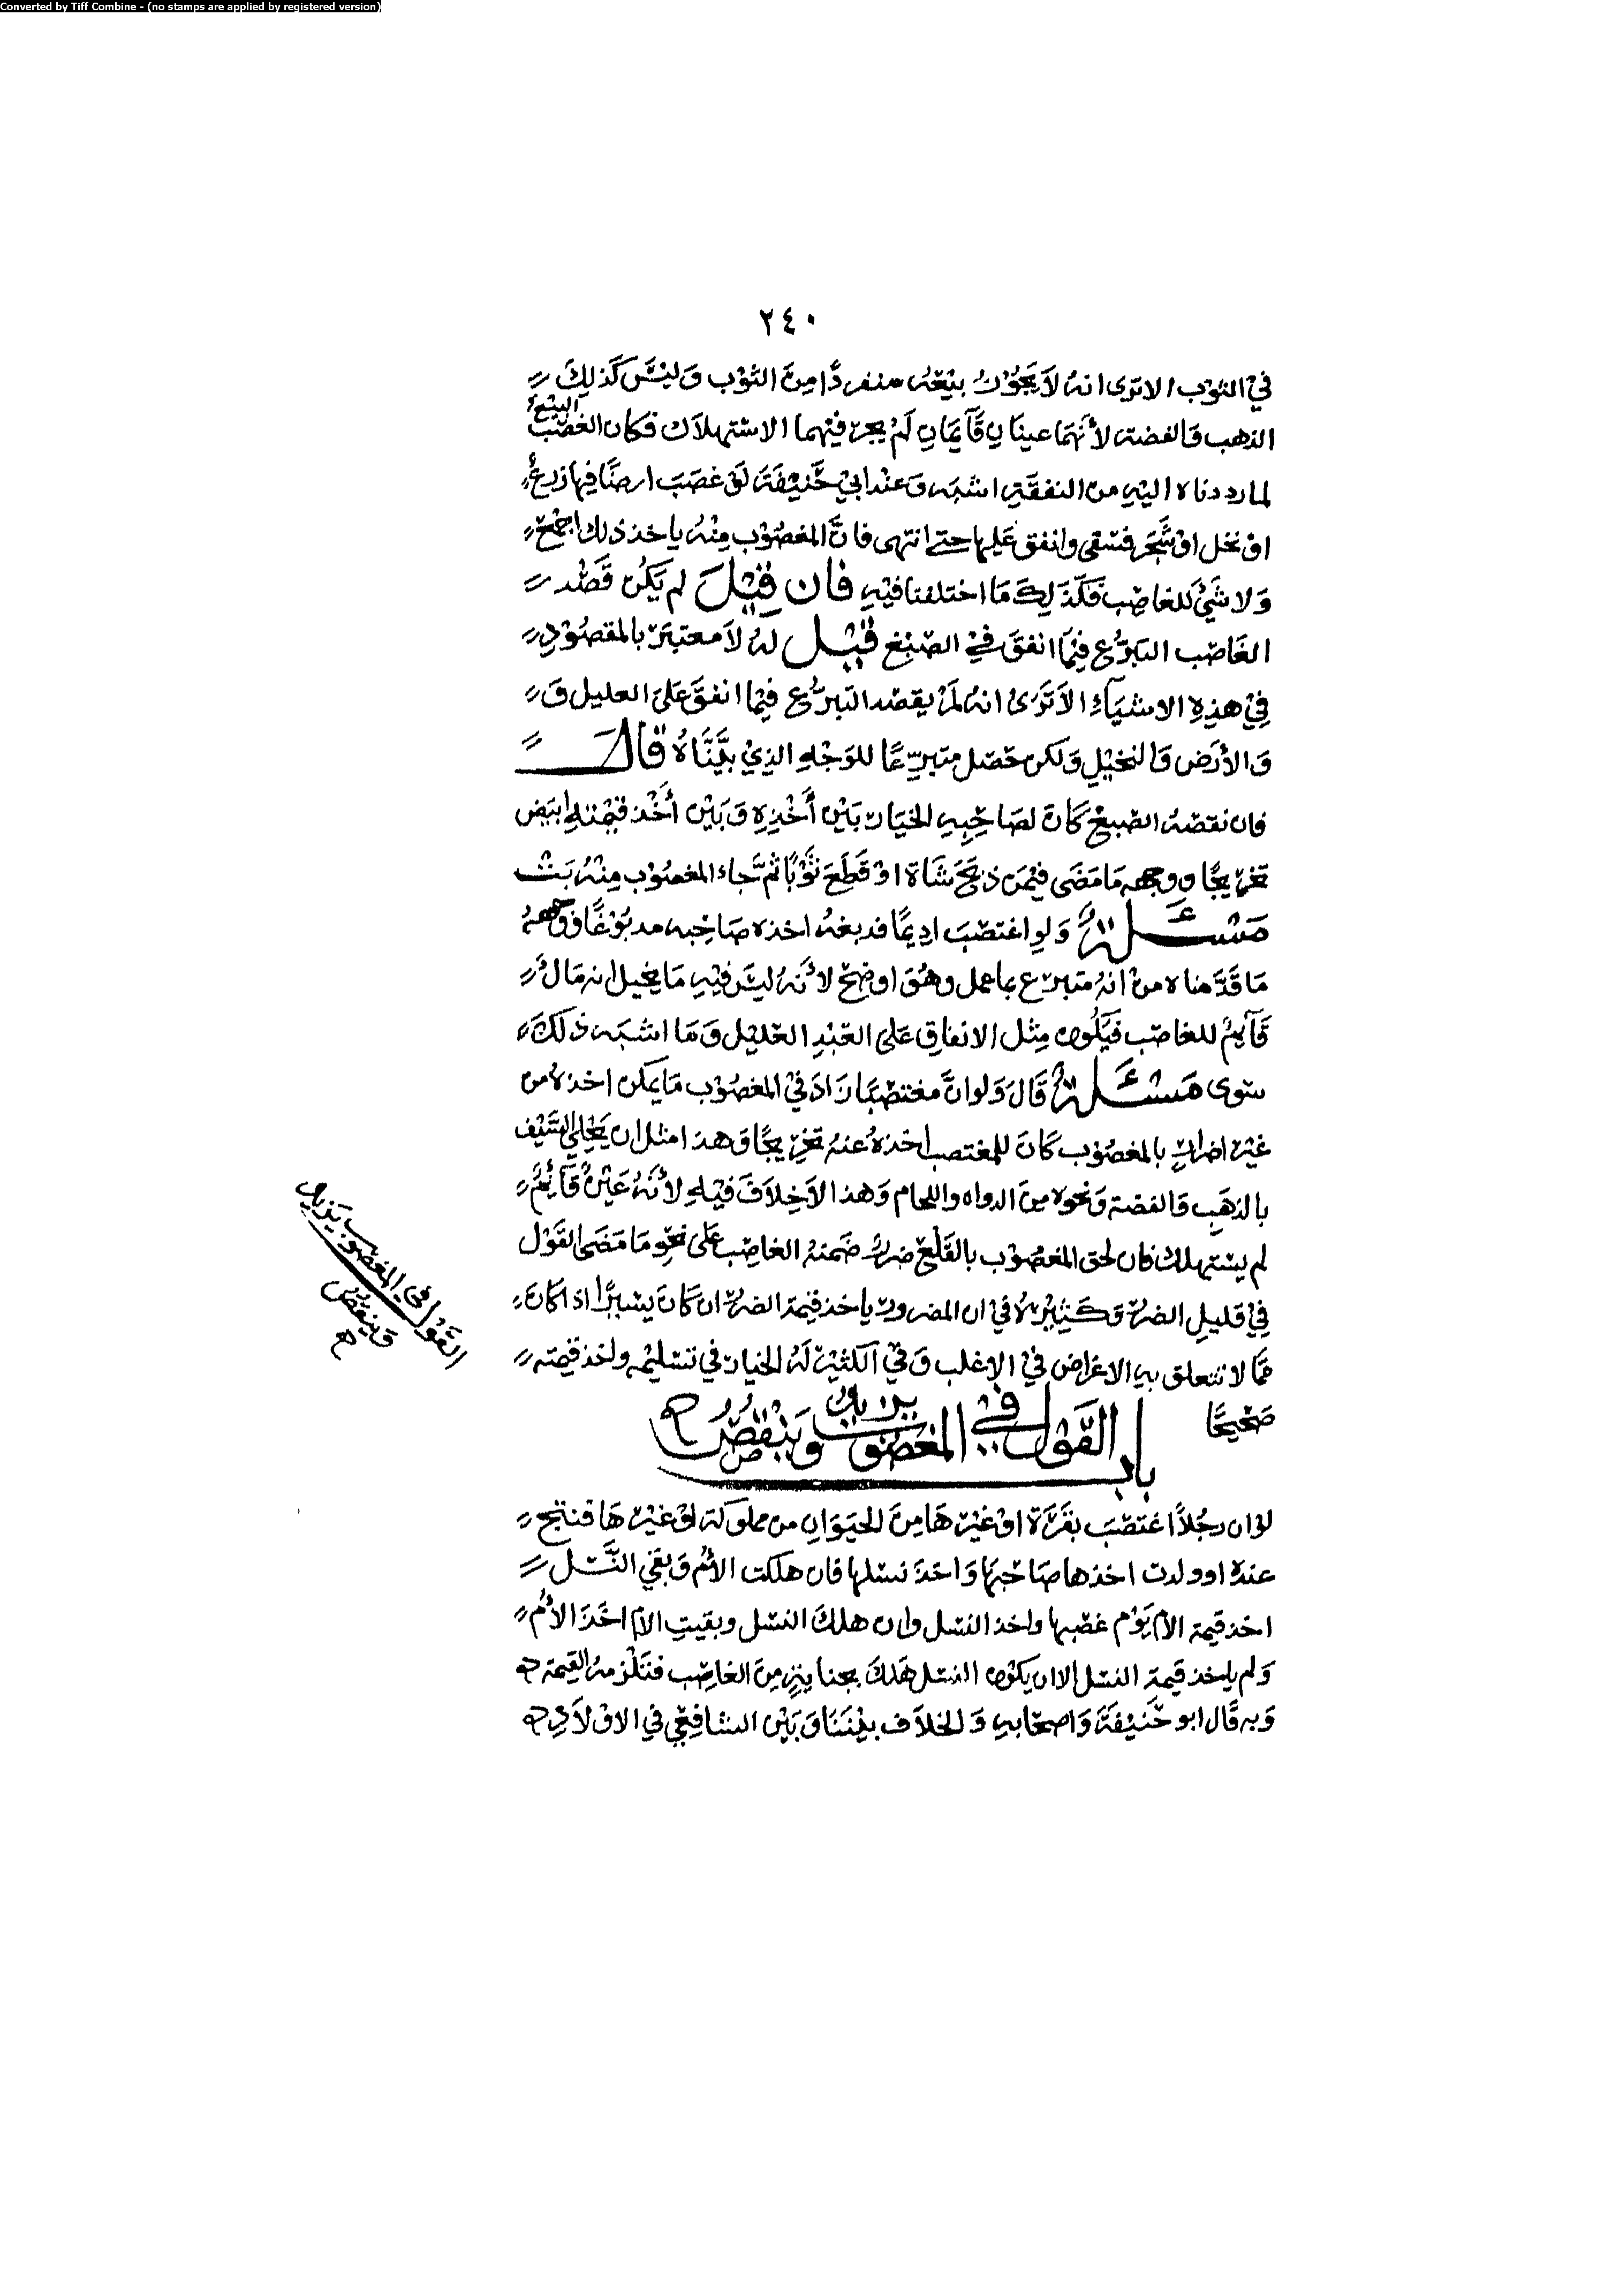 Converted by Tiff Combine - (no stamps are applied by registered version)
٢٤٠
في الثوب الا ترى انه لا يجوز بيعه منفردًا من الثوب وليس كذلك
الذهب والفضة لأنهما عينان قآيمان لم يجر فيهما الاستهلاك فكان الصبغ
لما رددناه اليه من النفقة اشبه وعند ابي حنيفة لو غصب ارضًا فيها زرع
او نخل او شجر فسقى وانفق عليها حتى انتهى فان المغصوب منه ياخذ ذلك اجمع
ولا شئ للغاصب فكذلك ما اختلفنا فيه فان قيل لم يكن قصد
الغاصب التبرع فيما انفق في الصبغ قيل له لا معتبر بالمقصود
في هذه الاشياء الا ترى انه لم يقصد التبرع فيما انفق على العليل و
والأرض والنخيل ولكن حصل متبرعًا للوجه الذي بيناه قال
فان نقصه الصبغ كان لصاحبه الخيار بين أخذه وبين أخذ قيمته ابيض
تخريجًا ووجهه ما مضى فيمن ذبح شاة او قطع ثوبًا ثم جاء المغصوب منه
مسئلة ولو اغتصب اديمًا فدبغه اخذه صاحبه مدبوغًا ووجهه
ما قدمناه من انه متبرع بما عمل وهو اوضح لأنه ليس فيه ما يخيل انه مال
قآيم للغاصب فيكون مثل الانفاق على العبد العليل وما اشبه ذلك
سوى مسئلة قال ولو ان مغتصبًا زاد في المغصوب ما يمكن اخذه من
غير اضرار بالمغصوب كان للمغتصب اخذه عنه تخريجًا وهذا مثل ان يحلي السيف
بالذهب والفضة ونحوه من الدواه واللجام وهذا لا خلاف فيه لأنه عين قآئم
لم يستهلك فان لحق المغصوب بالقلع ضرر ضمنه الغاصب على نحو ما مضى القول
في قليل الضرر وكثيره في ان المضرور ياخذ قيمة الضرر ان كان يسيرًا اذا كان
مما لا تتعلق به الاغراض في الاغلب وفي الكثير له الخيار في تسليمه واخذ قيمته
صحيحًا
باب القول في المغصوب يزيد وينقص
القول في المغصوب يزيد
وينقص
لو ان رجلاً اغتصب بقرة او غيرها من الحيوان من مملوكة او غيرها فنتج
عنده او ولدت اخذها صاحبها واخذ نسلها فان هلكت الأم وبقي النسل
اخذ قيمة الأم يوم غصبها واخذ النسل وان هلك النسل وبقيت الأم اخذ الأم
ولم ياخذ قيمة النسل الا ان يكون النسل هلك بجناية من الغاصب فتلزمه القيمة
وبه قال ابو حنيفة واصحابه والخلاف بيننا وبين الشافعي في الاولاد